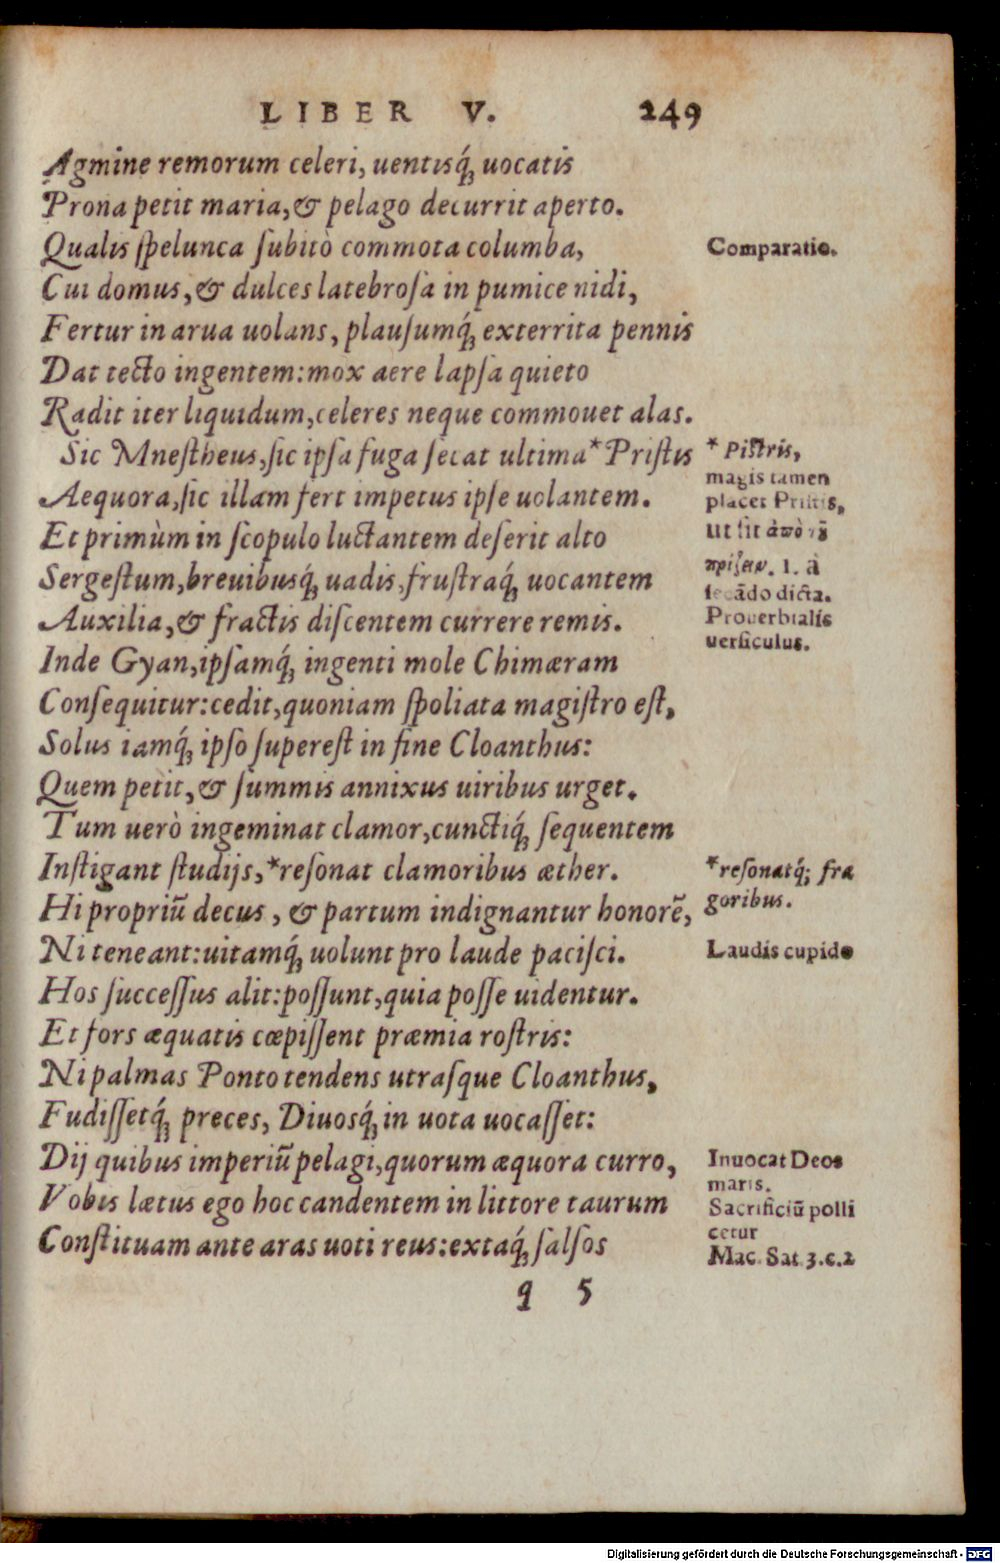 LIBER V. 249
Agmine remorum celeri, uentisq́; uocatis
Prona petit maria, & pelago decurrit aperto.
Qualis ſpelunca ſubitò commota columba,
Comparatio.
Cui domus, & dulces latebroſa in pumice nidi,
Fertur in arua uolans, plauſumq́; exterrita pennis
Dat tecto ingentem: mox aere lapſa quieto
Radit iter liquidum, celeres neque commouet alas.
Sic Mneſtheus, ſic ipſa fuga ſecat ultima * Priſtis
Aequora, ſic illam fert impetus ipſe uolantem.
Et primùm in ſcopulo luctantem deſerit alto
Sergeſtum, breuibusq́; uadis, fruſtraq́; uocantem
Auxilia, & fractis diſcentem currere remis.
* Piſtris,
magis tamen
placet Priſtis,
ut ſit ἀπὸ τῦ
πρίζειν. i. à
ſecãdo dicta.
Prouerbialis
uerſiculus.
Inde Gyan, ipſamq́; ingenti mole Chimæram
Conſequitur: cedit, quoniam ſpoliata magiſtro eſt,
Solus iamq́; ipſo ſupereſt in fine Cloanthus:
Quem petit, & ſummis annixus uiribus urget.
Tum uerò ingeminat clamor, cunctiq́; ſequentem
Inſtigant ſtudijs, * reſonat clamoribus æther.
* reſonatq́; fra
goribus.
Hi propriũ decus, & partum indignantur honorẽ,
Ni teneant: uitamq́; uolunt pro laude paciſci.
Laudis cupido
Hos ſucceſſus alit: poſſunt, quia poſſe uidentur.
Et fors æquatis cœpiſſent præmia roſtris:
Ni palmas Ponto tendens utraſque Cloanthus,
Fudiſſetq́; preces, Diuosq́; in uota uocaſſet:
Dij quibus imperiũ pelagi, quorum æquora curro,
Vobis lætus ego hoc candentem in littore taurum
Conſtituam ante aras uoti reus: extaq́; ſalſos
Inuocat Deos
maris.
Sacrificiũ polli
cetur
Mac. Sat. 3. c. 2
q 5
Digitalisierung gefördert durch die Deutsche Forschungsgemeinschaft - DFG